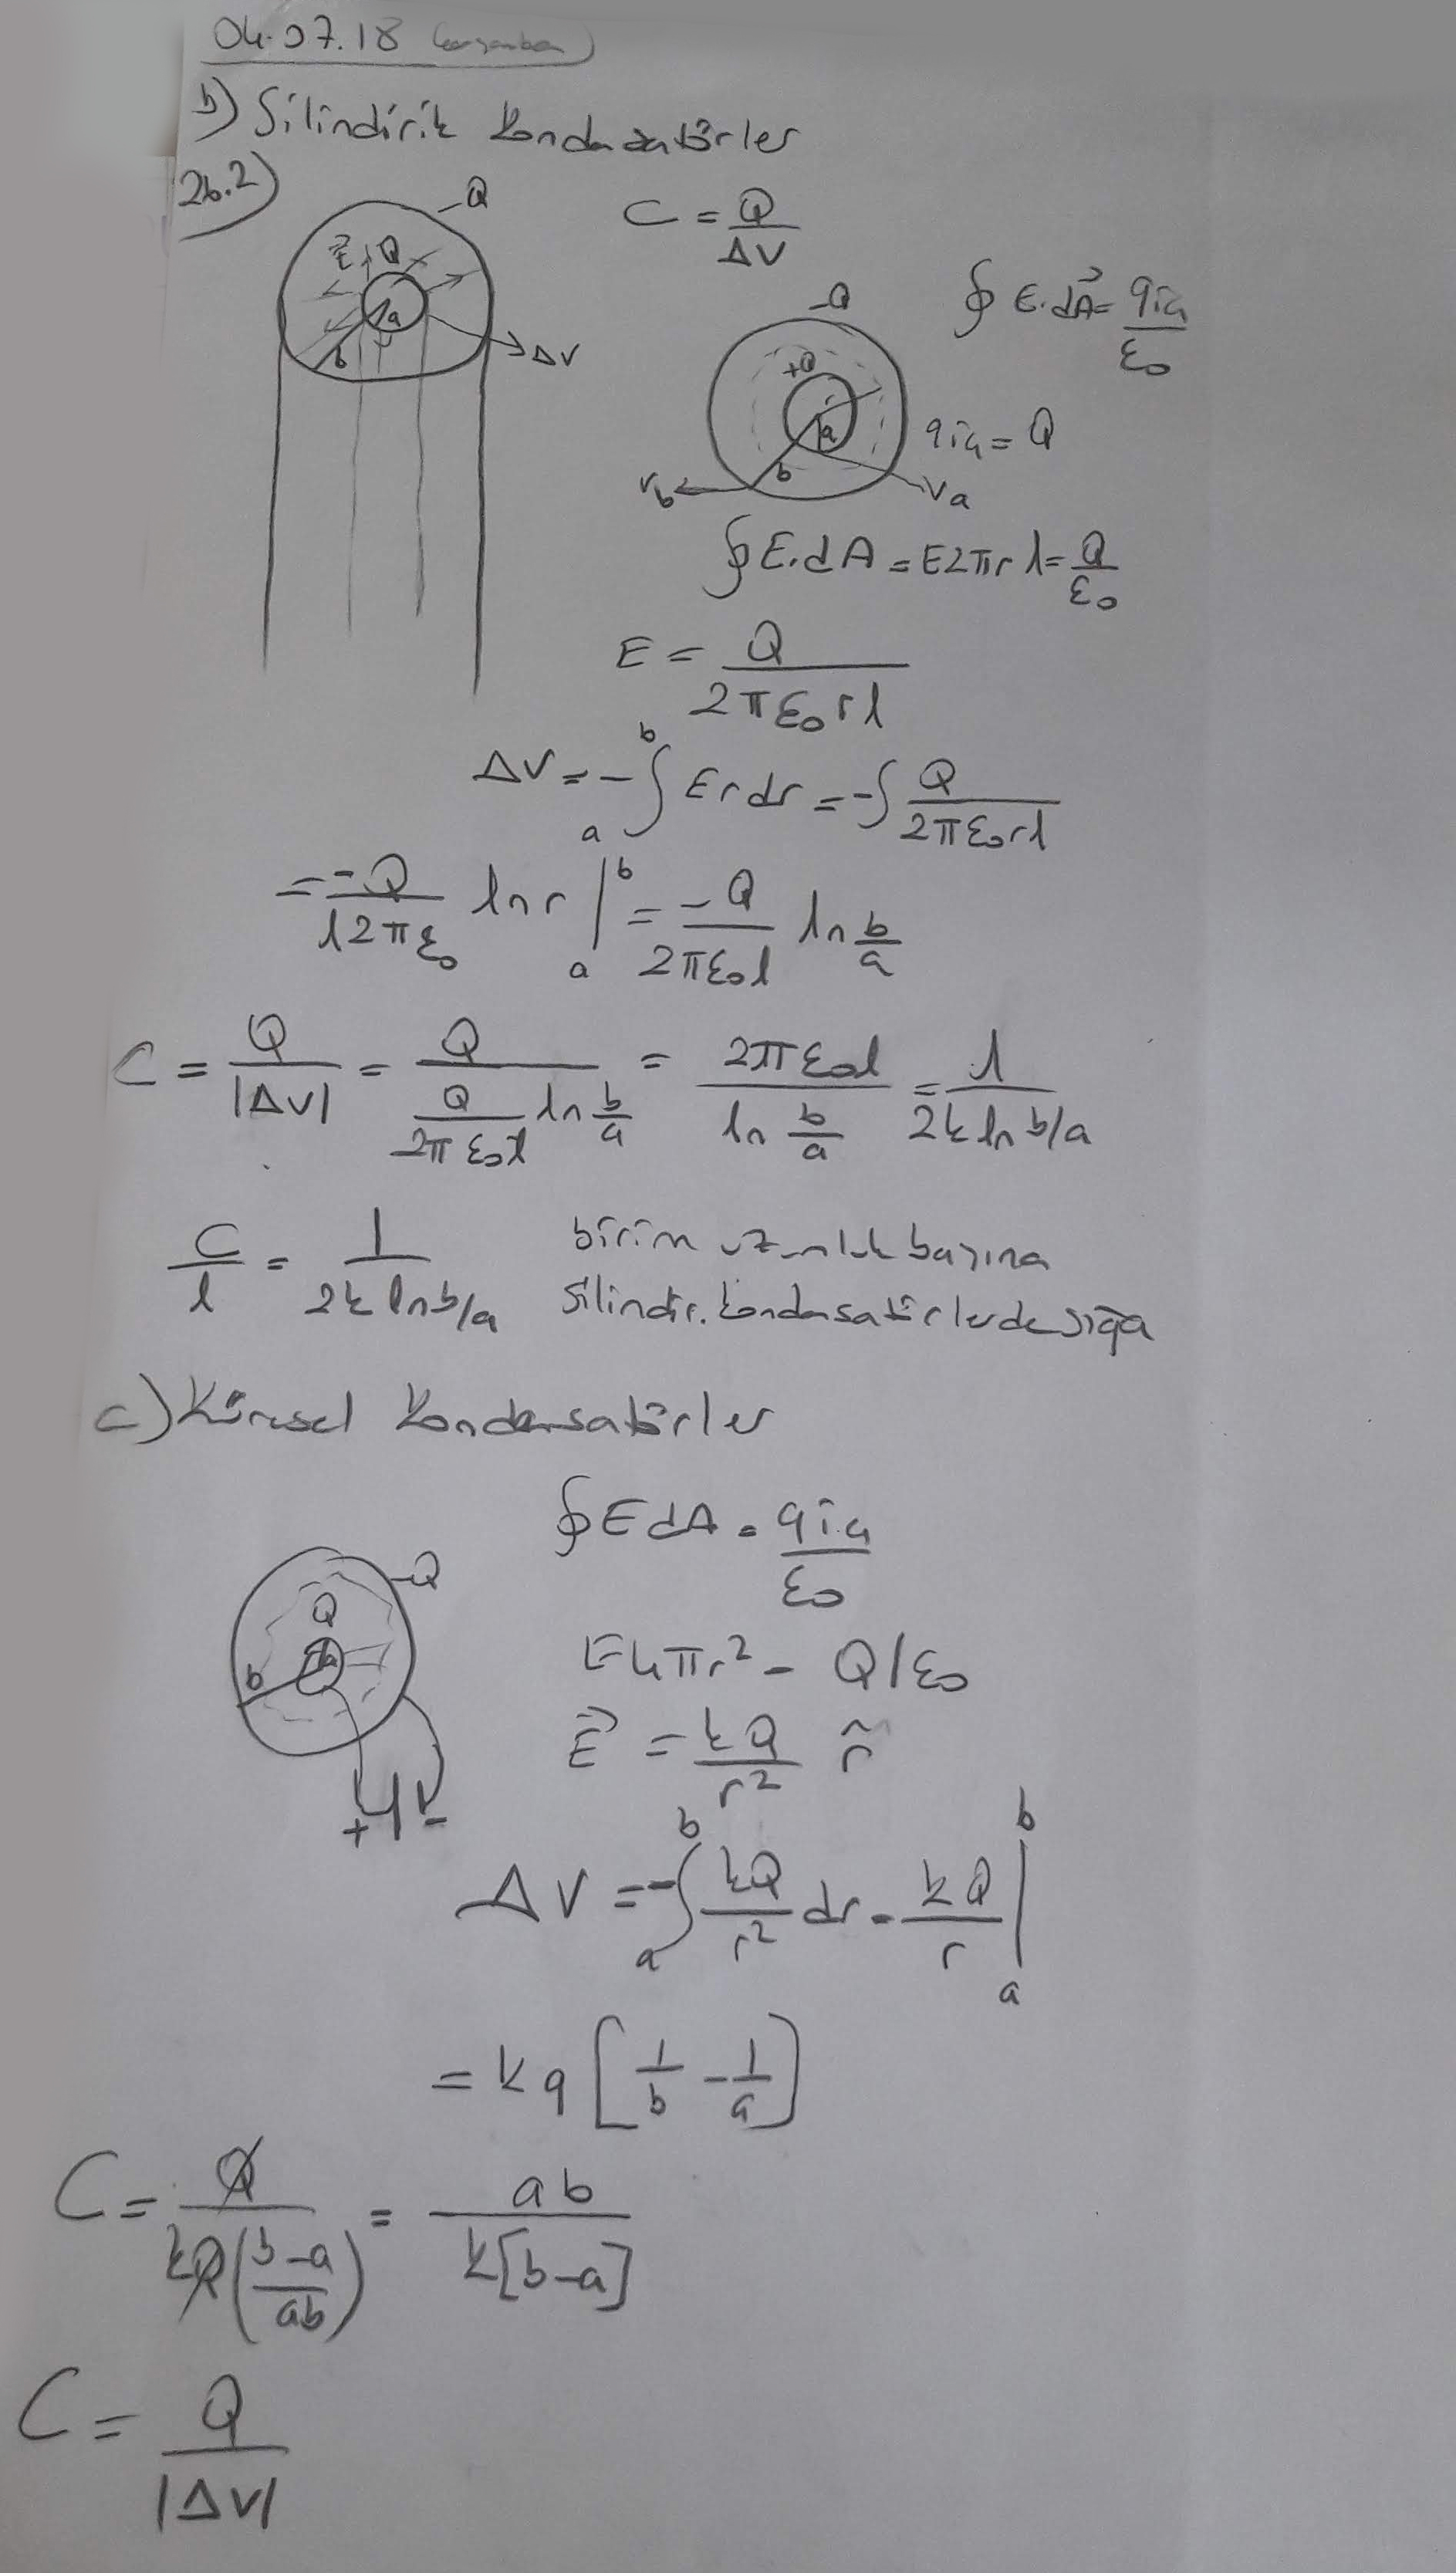 04.07.18 Çarşamba
b) Silindirik Kondansatörler
26.2)
-Q
C = Q/ΔV
E⃗ Q
a
b
ΔV
-Q
∮ E.dA⃗ = qiç/ε₀
+Q
a
b
qiç = Q
Vb
Va
∮ E.dA = E2πrl = Q/ε₀
E = Q/2πε₀rl
ΔV = -∫ₐᵇ Er dr = -∫ Q/2πε₀rl
= -Q/l2πε₀ ln r |ₐᵇ = -Q/2πε₀l ln b/a
C = Q/|ΔV| = Q/(Q/2πε₀l ln b/a) = 2πε₀l/(ln b/a) = l/2k ln b/a
C/l = 1/2k ln b/a birim uzunluk başına
silindir. kondansatörlerde sığa
c) Küresel Kondansatörler
∮ E dA = qiç/ε₀
-Q
Q
a
b
E4πr² = Q/ε₀
E⃗ = kQ/r² r̂
+ -
ΔV = -∫ₐᵇ kQ/r² dr = kQ/r |ₐᵇ
= kq [1/b - 1/a]
C = Q/kQ(b-a/ab) = ab/k[b-a]
C = Q/|ΔV|